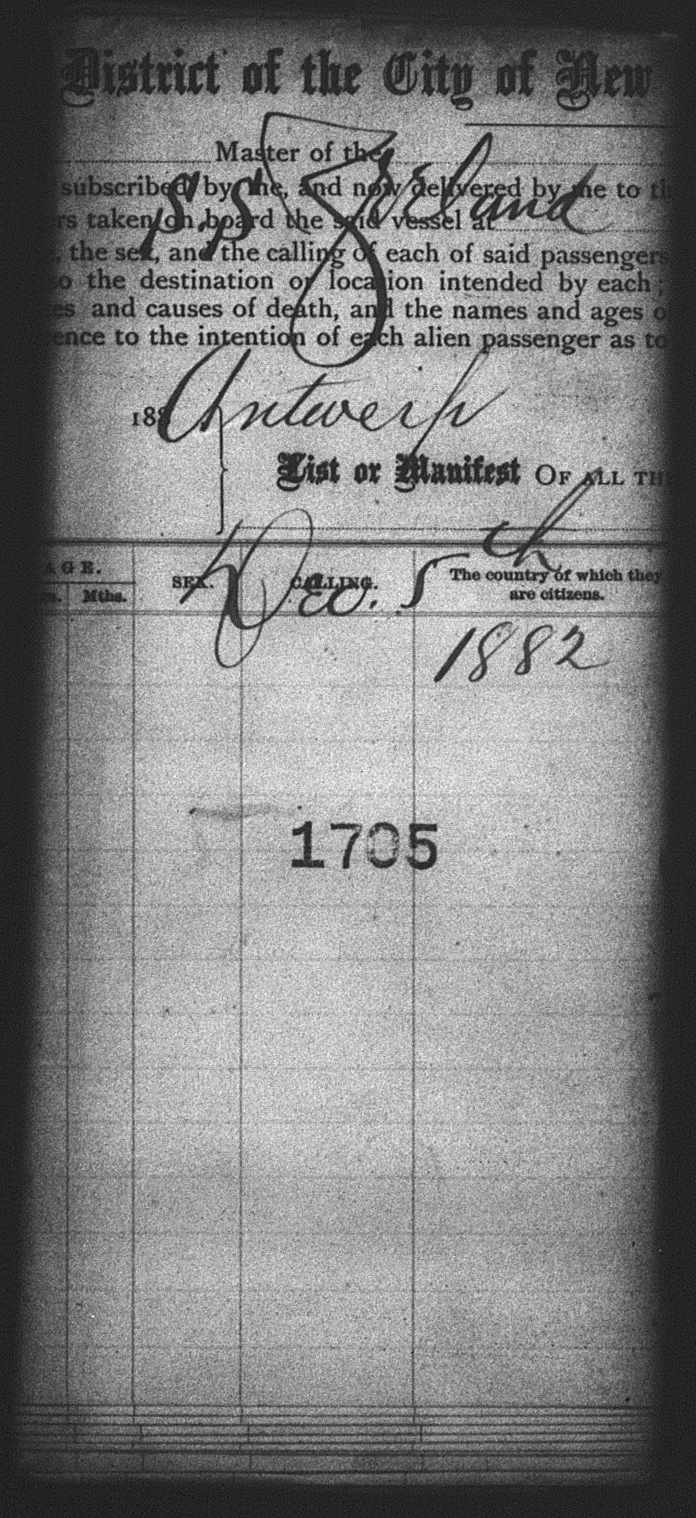 District of the City of New
Master of the
S.S. Zeeland
subscribed by me, and now delivered by me to
taken on board the said vessel at
, the sex, and the calling of each of said passengers
the destination or location intended by each ;
and causes of death, and the names and ages
to the intention of each alien passenger as to
188
Antwerp
List or Manifest OF ALL
AGE.
Mths.
SEX.
CALLING.
The country of which they
are citizens.
Dec. 5th
1882
1705